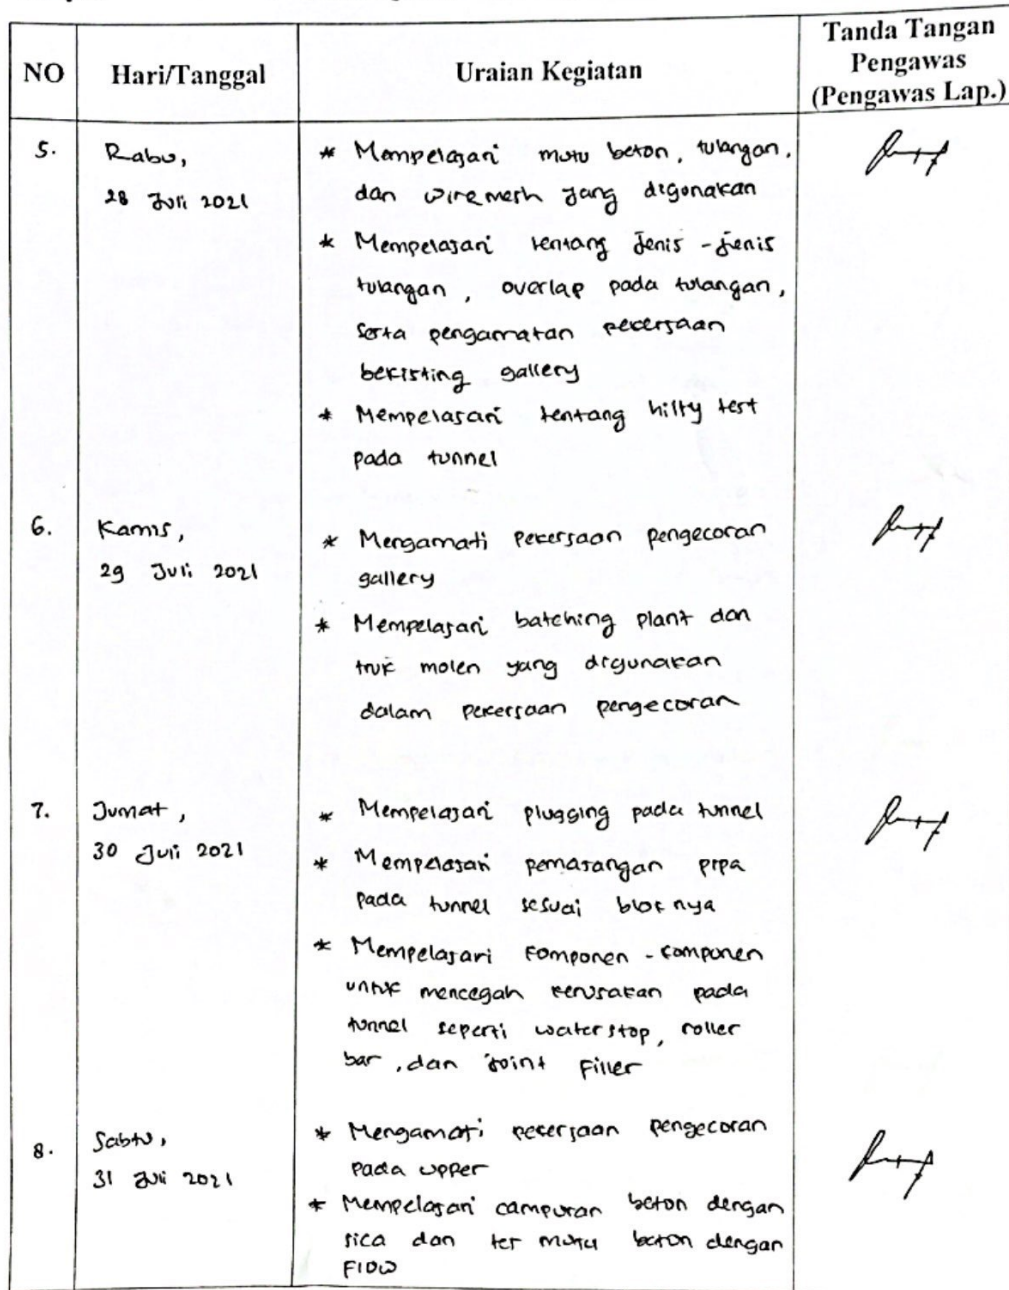 NO
Hari/Tanggal
Uraian Kegiatan
Tanda Tangan
Pengawas
(Pengawas Lap.)
5.
Rabu,
28 Juli 2021
* Mempelajari mutu beton, tulangan,
dan wiremesh yang digunakan
* Mempelajari tentang jenis - jenis
tulangan, overlap pada tulangan,
serta pengamatan pekerjaan
bekisting gallery
* Mempelajari tentang hilty test
pada tunnel
6.
Kamis,
29 Juli 2021
* Mengamati pekerjaan pengecoran
gallery
* Mempelajari batching plant dan
truk molen yang digunakan
dalam pekerjaan pengecoran
7.
Jumat,
30 Juli 2021
* Mempelajari plugging pada tunnel
* Mempelajari pemasangan pipa
pada tunnel sesuai bloknya
* Mempelajari komponen - komponen
untuk mencegah kerusakan pada
tunnel seperti waterstop, roller
bar, dan joint filler
8.
Sabtu,
31 Juli 2021
* Mengamati pekerjaan pengecoran
pada upper
* Mempelajari campuran beton dengan
sica dan tes mutu beton dengan
flow